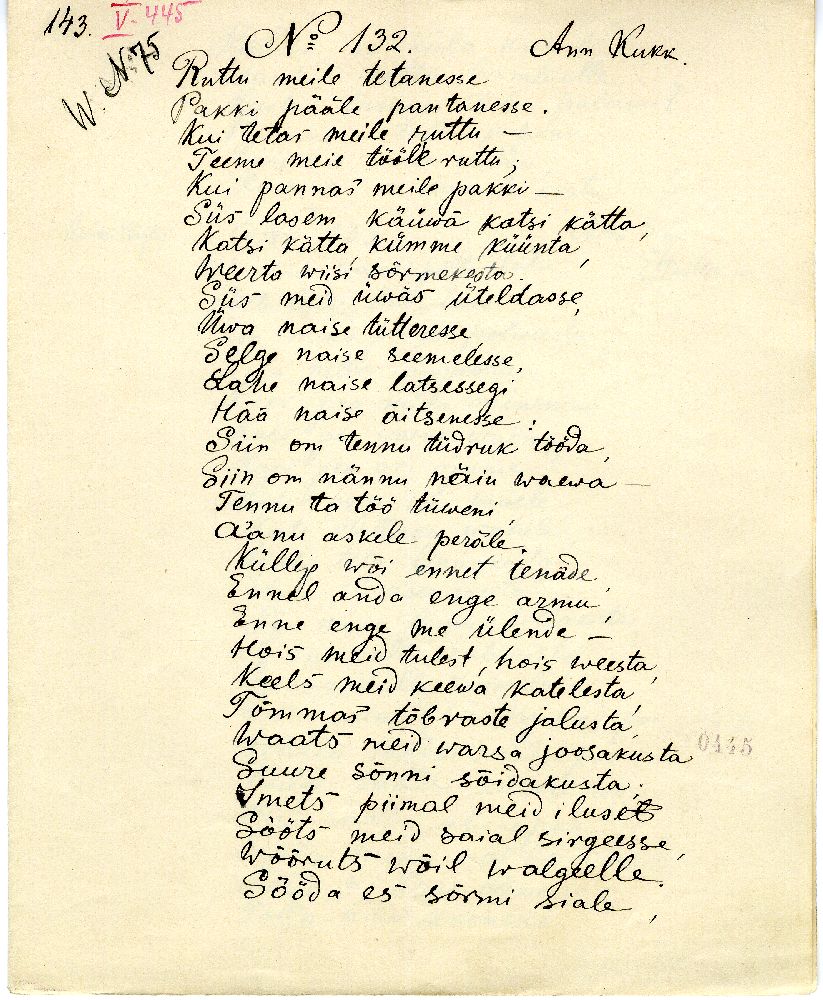 143. V-445
W. N: 75
№ 132. Ann Kukk.
Ruttu meile tetanesse
Pakki pääle pantanesse.
Kui tetas meile ruttu –
Teeme meie tööle ruttu,
Kui pannas meile pakki –
Siis lasem käüwä katsi kätta,
Katsi kätta, kümme küünta,
Weerto wiisi sõrmekesta.
Siis meid üwäs üteldasse,
Üwa naise tütteresse,
Selge naise seemelesse,
Lahe naise latsessegi
Hää naise äitsenesse:
Siin om tennu tüdruk tööda,
Siin om nännu näiu waewa –
Tennu ta töö tüweni,
A'anu askele peräle.
Küllep wõi ennet tenäde,
Ennel anda enge armu,
Enne enge me ülende –
Hois meid tulest, hois weesta,
Keels meid keewa katelesta,
Tõmmas tõbraste jalusta,
Waats meid warsa joosakusta
Suure sõnni sõidakusta.
Imets piimal meid iluset
Sööts meid saial sirgeesse,
Wõõruts wõil walgeelle.
Sööda es sõrmi siale,
0445